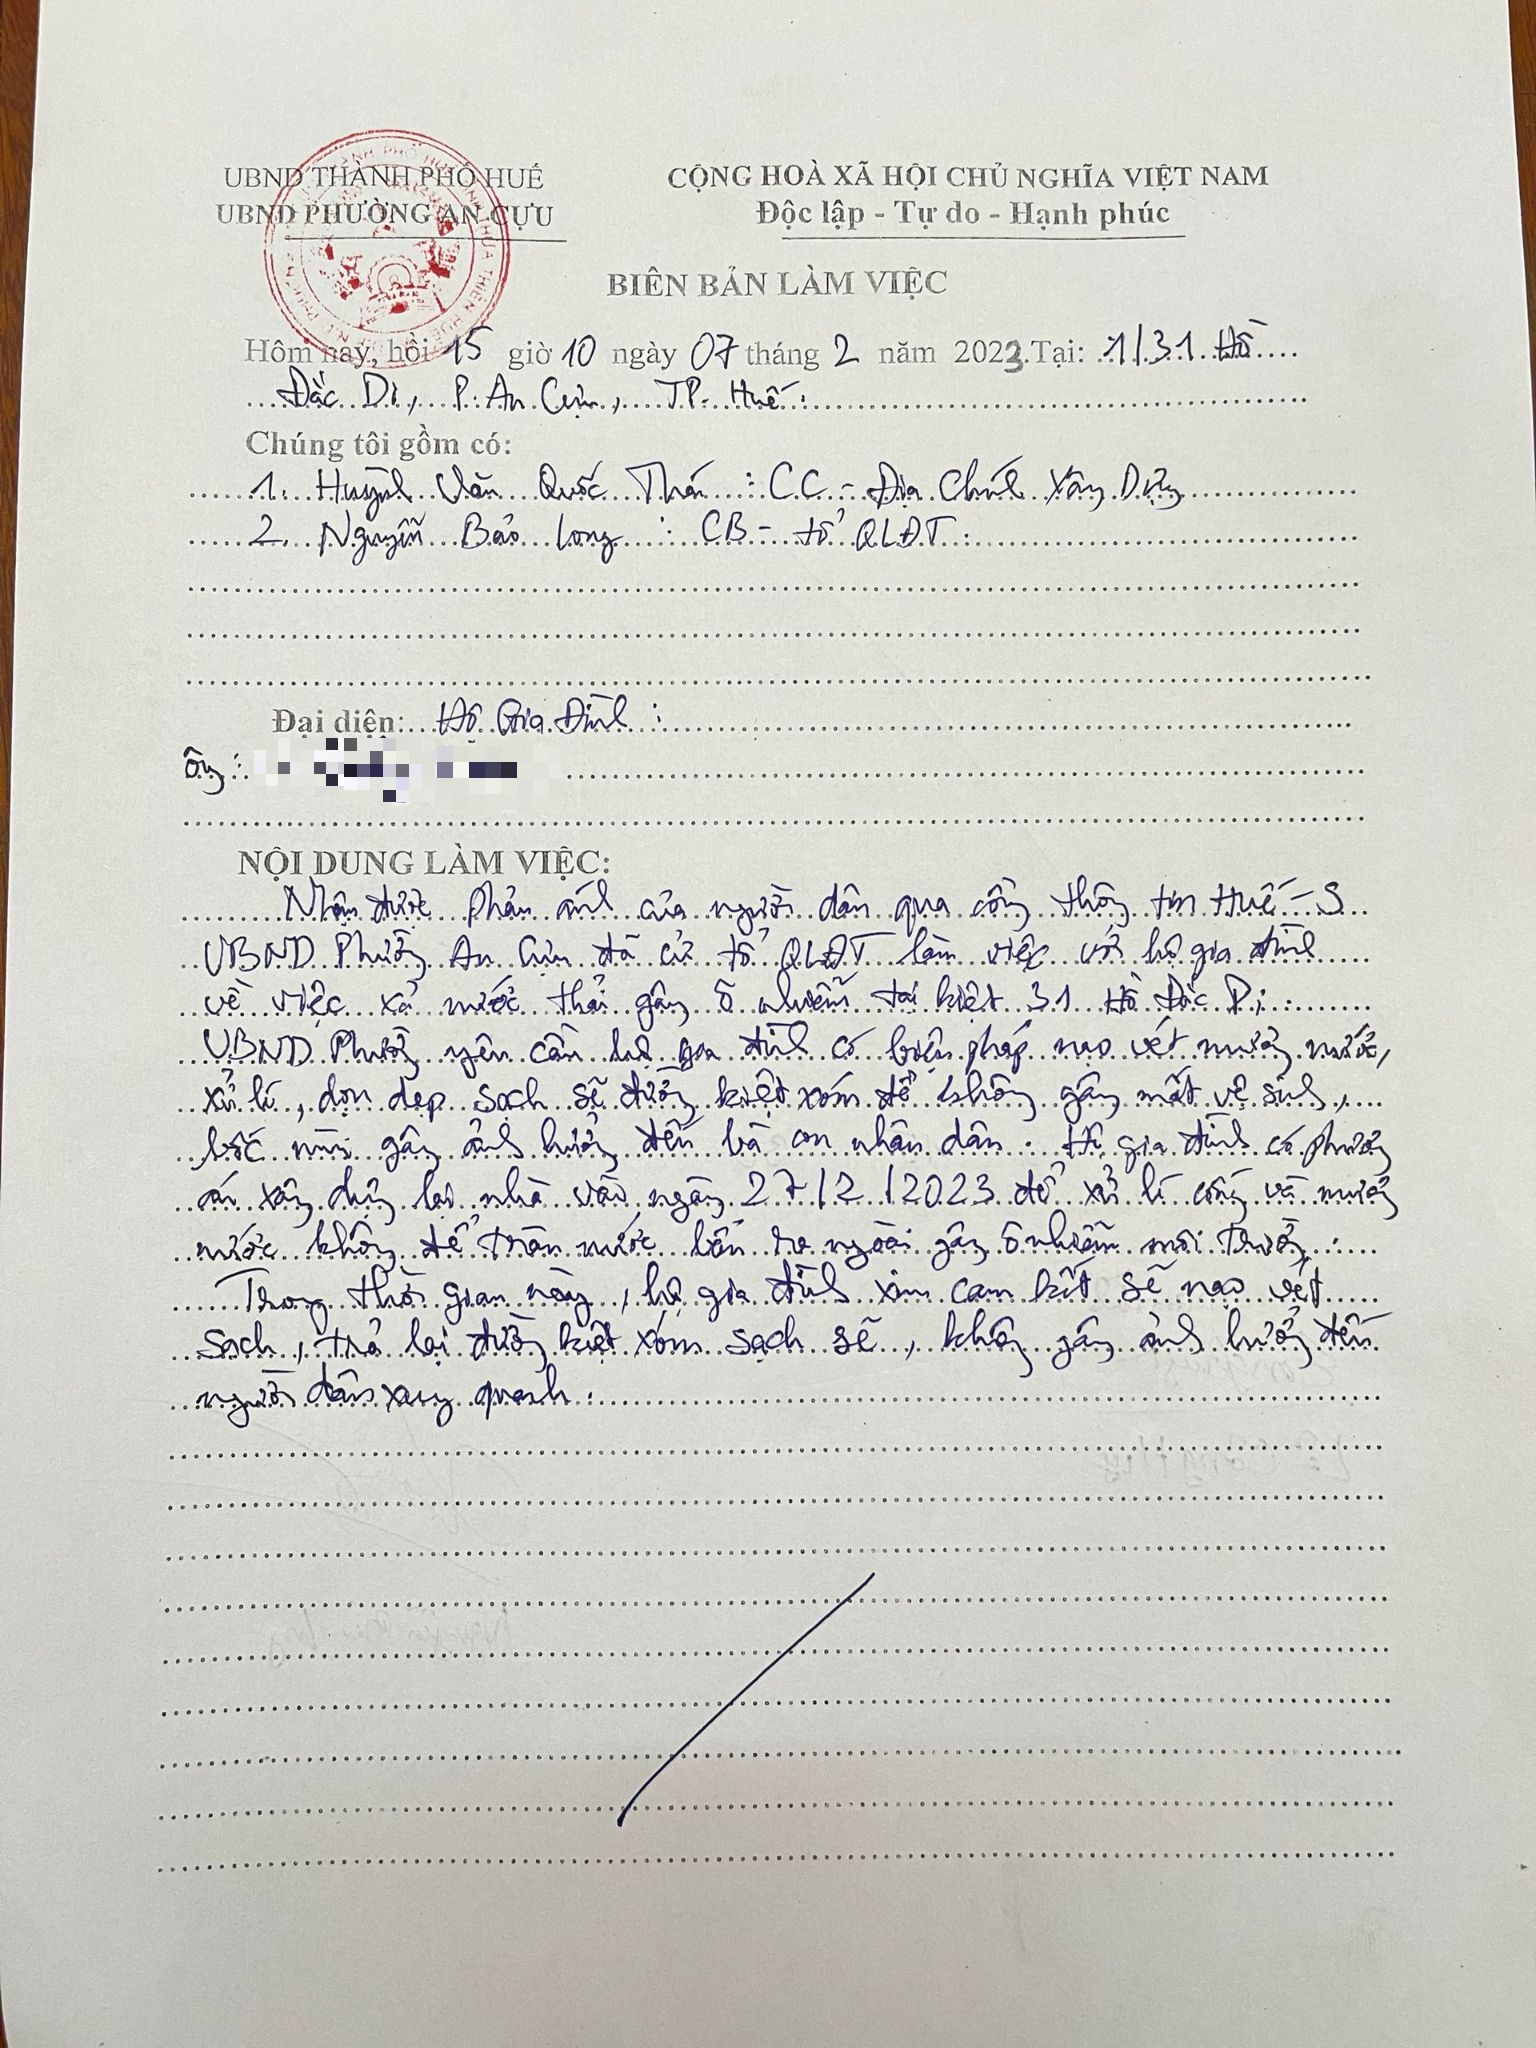 UBND THÀNH PHỐ HUẾ
UBND PHƯỜNG AN CỰU
CỘNG HOÀ XÃ HỘI CHỦ NGHĨA VIỆT NAM
Độc lập - Tự do - Hạnh phúc
BIÊN BẢN LÀM VIỆC
Hôm nay, hồi 15 giờ 10 ngày 07 tháng 2 năm 2023. Tại: 1/31 Hồ
Đắc Di, P. An Cựu, TP. Huế.
Chúng tôi gồm có:
1. Huỳnh Văn Quốc Thái : CC - Địa Chính Xây Dựng
2. Nguyễn Bảo Long : CB - tổ QLĐT.
Đại diện: Hộ Gia Đình :
ông :
NỘI DUNG LÀM VIỆC:
Nhận được phản ánh của người dân qua cổng thông tin Huế-S
UBND Phường An Cựu đã cử tổ QLĐT làm việc với hộ gia đình
về việc xả nước thải gây ô nhiễm tại kiệt 31 Hồ Đắc Di.
UBND Phường yêu cầu hộ gia đình có biện pháp nạo vét mương nước,
xử lí, dọn dẹp sạch sẽ đường kiệt xóm để không gây mất vệ sinh,
bốc mùi gây ảnh hưởng đến bà con nhân dân. Hộ gia đình có phương
án xây dựng lại nhà vào ngày 27/2/2023 để xử lí cống và mương
nước không để tràn nước bẩn ra ngoài gây ô nhiễm môi trường.
Trong thời gian này, hộ gia đình xin cam kết sẽ nạo vét
sạch, trả lại đường kiệt xóm sạch sẽ, không gây ảnh hưởng đến
người dân xung quanh.